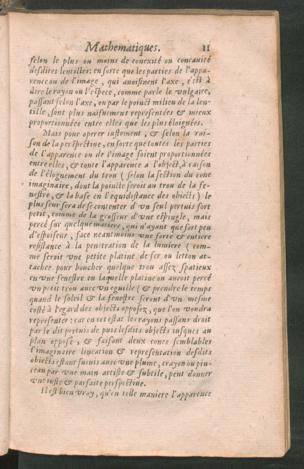 Mathematiques. 11
selon le plus ou moins de conexité ou concauité
desdites lentilles: en sorte que les parties de l'appa-
rence ou de l'image, qui auoisinent l'axe, c'est à
dire le rayon ou l'espece, comme parle le vulgaire,
passant selon l'axe, ou par le poinct milieu de la len-
tille, sont plus naifuement representées & mieux
proportionnées entre elles que les plus éloignées.
Mais pour operer iustement, & selon la rai-
son de la perspectiue, en sorte que toutes les parties
de l'apparence ou de l'image soient proportionnées
entre elles, & toute l'apparence à l'object, à raison
de l'éloignement du trou (selon la section du cone
imaginaire, dont la poincte seroit au trou de la fe-
nestre, & la base en l'équidistance des obiects) le
plus seur sera de se contenter d'vn seul pertuis fort
petit, comme de la grosseur d'vne espingle, mais
percé sur quelque matiere, qui n'ayant que fort peu
d'espoisseur, face neantmoins vne forte & entiere
resistance à la penetration de la lumiere (com-
me seroit vne petite platine de fer ou letton at-
tachée pour boucher quelque trou assez spatieux
en vne fenestre en laquelle platine on auroit percé
vn petit trou auec vn eguille) & prendre le temps
quand le soleil & la fenestre seront d'vn mesme
costé à l'egard des objects opposez, que l'on voudra
representer: car en cet estat les rayons passans droit
par le dit pertuis de puis lesdits objects iusques au
plan opposé, & faisant deux cones semblables
l'imaginaire lineation & representation desdits
obiects estant suiuis auec vne plume, crayon ou pin-
ceau par vne main artiste & subtile, peut donner
vne iuste & parfaite perspectiue.
Il est bien vray, qu'en telle maniere l'apparence